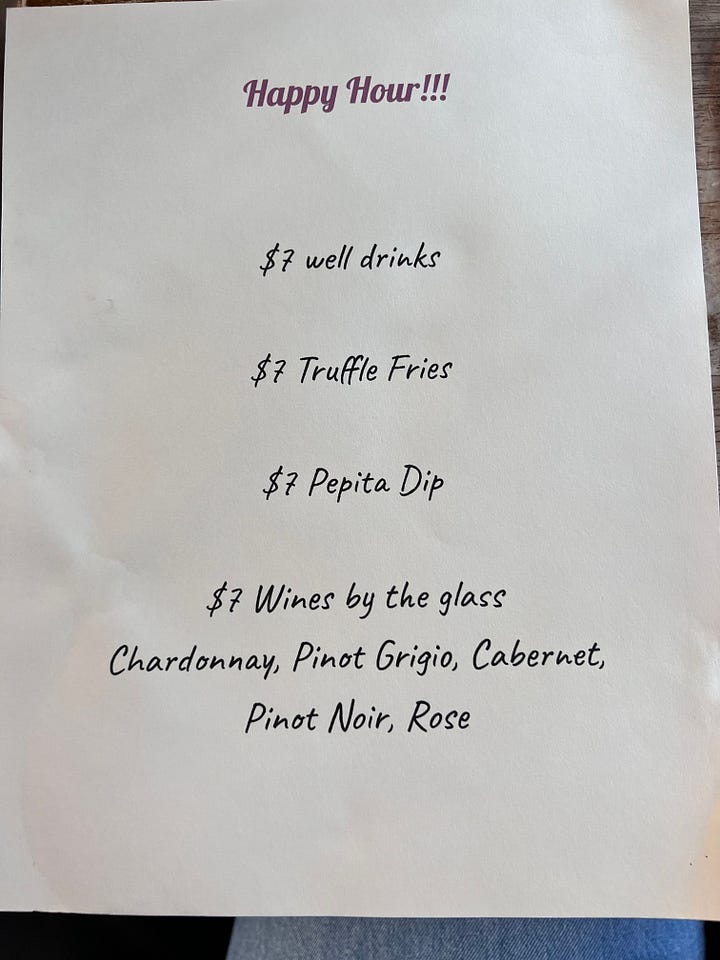 Happy Hour!!!
$7 well drinks
$7 Truffle Fries
$7 Pepita Dip
$7 Wines by the glass
Chardonnay, Pinot Grigio, Cabernet,
Pinot Noir, Rose